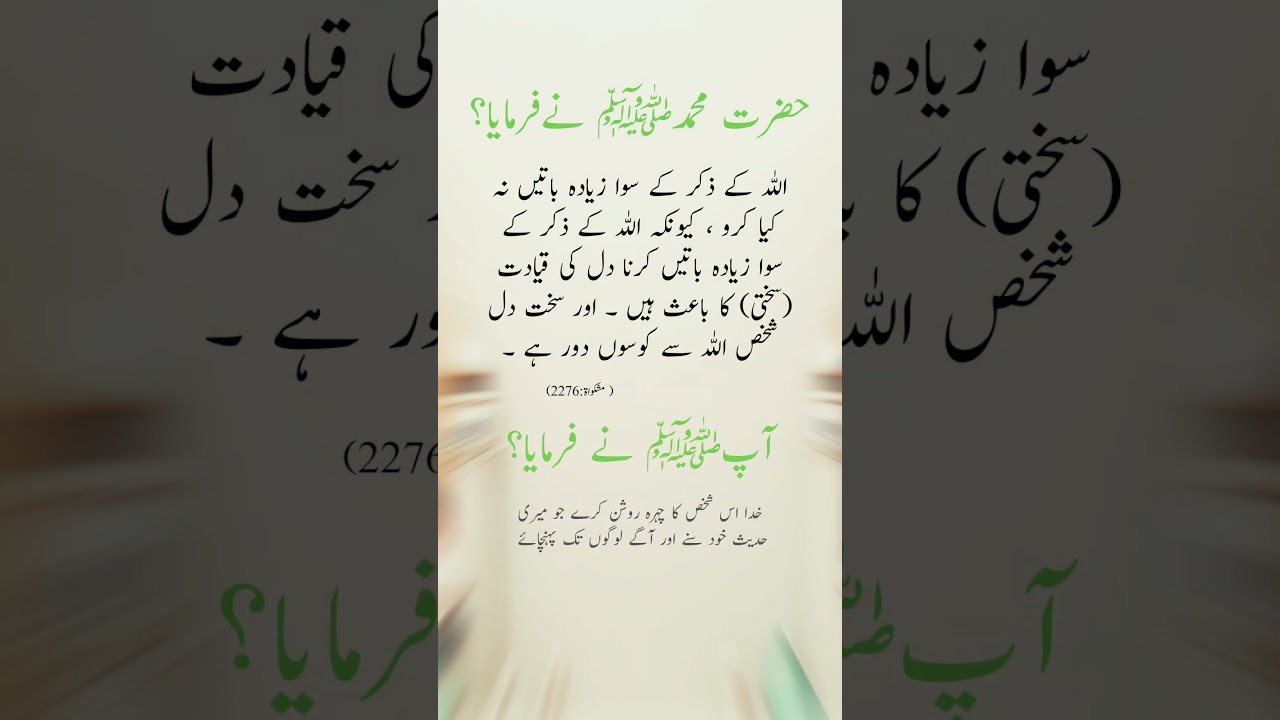 حضرت محمدﷺ نےفرمایا؟
اللہ کے ذکر کے سوا زیادہ باتیں نہ
کیا کرو ، کیونکہ اللہ کے ذکر کے
سوا زیادہ باتیں کرنا دل کی قیادت
(سختی) کا باعث ہیں ۔ اور سخت دل
شخص اللہ سے کوسوں دور ہے ۔
( مشکواۃ:2276)
آپﷺ نے فرمایا؟
خدا اس شخص کا چہرہ روشن کرے جو میری
حدیث خود سنے اور آگے لوگوں تک پہنچائے